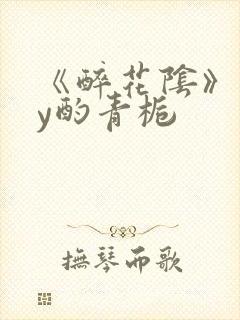 《醉花陰》
y酌青栀
撫琴而歌